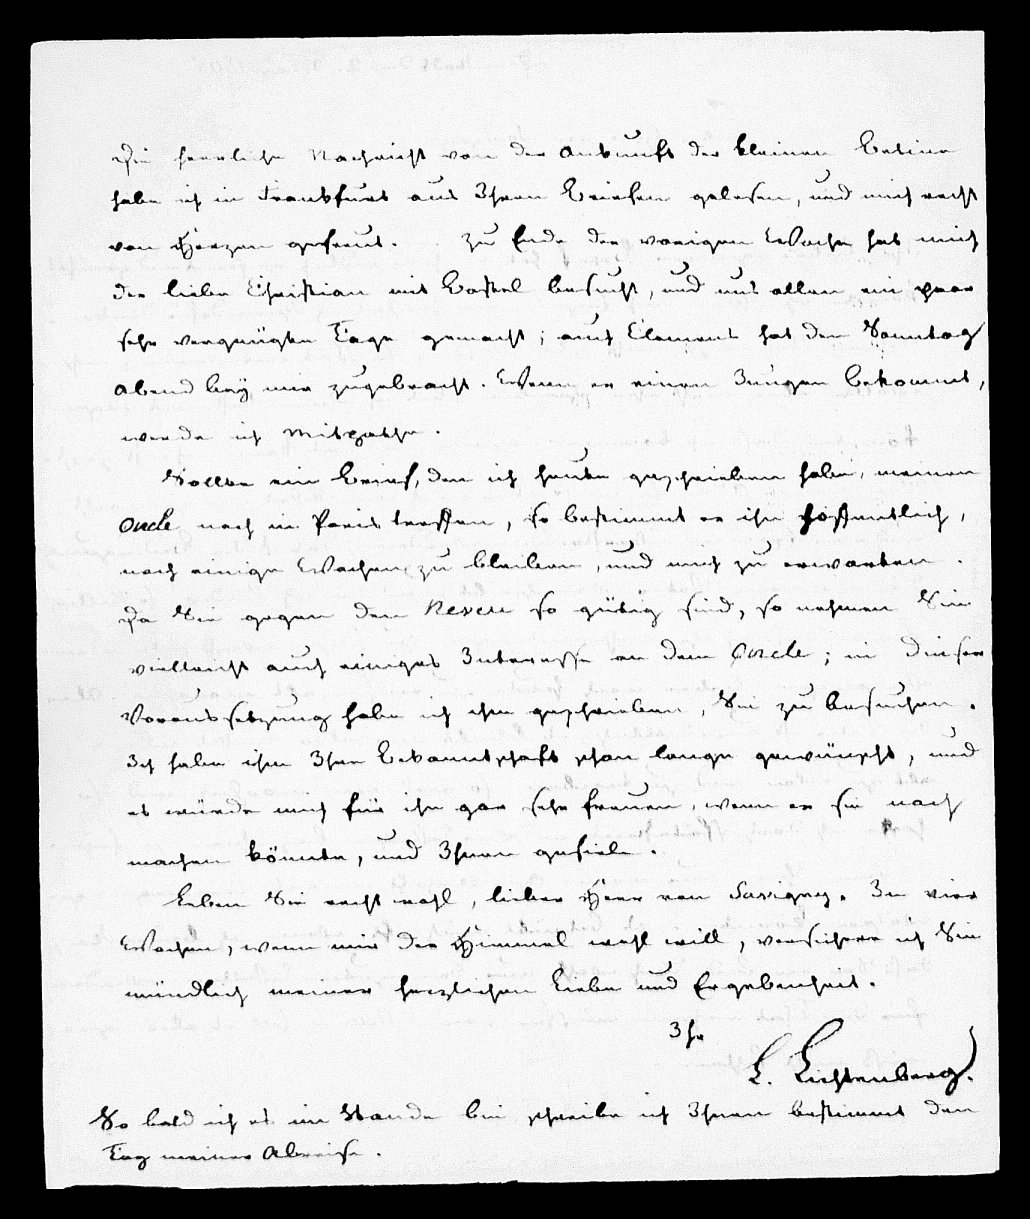 Die herrliche Nachricht von der Ankunft der kleinen Betine
habe ich in Frankfurt aus Ihren Briefen gelesen, und mich recht
von Herzen gefreut. Zu Ende der vorigen Woche hat mich
der liebe Christian mit Bostel besucht, und uns allen ein paar
sehr vergnügte Tage gemacht; auch Clemens hat den Sonntag
Abend bey mir zugebracht. Wenn er einen Jungen bekommt,
werde ich Mitpathe.
Sollte ein Brief, den ich heute geschrieben habe, meinen
Oncle noch in Paris treffen, so bestimmt er ihn hoffentlich,
noch einige Wochen zu bleiben, und mich zu erwarten.
Da Sie gegen den Neveu so gütig sind, so nehmen Sie
vielleicht auch einiges Interesse an dem Oncle; in dieser
Voraussetzung habe ich ihm geschrieben, Sie zu besuchen.
Ich habe ihm Ihre Bekanntschaft schon lange gewünscht, und
es würde mich für ihn gar sehr freuen, wenn er sie noch
machen könnte, und Ihnen gefiele.
Leben Sie recht wohl, lieber Herr von Savigny. In vier
Wochen, wenn mir der Himmel wohl will, versichere ich Sie
mündlich meiner herzlichen Liebe und Ergebenheit.
Ihr
L. Lichtenberg.
So bald ich es im Stande bin schreibe ich Ihnen bestimmt den
Tag meiner Abreise.